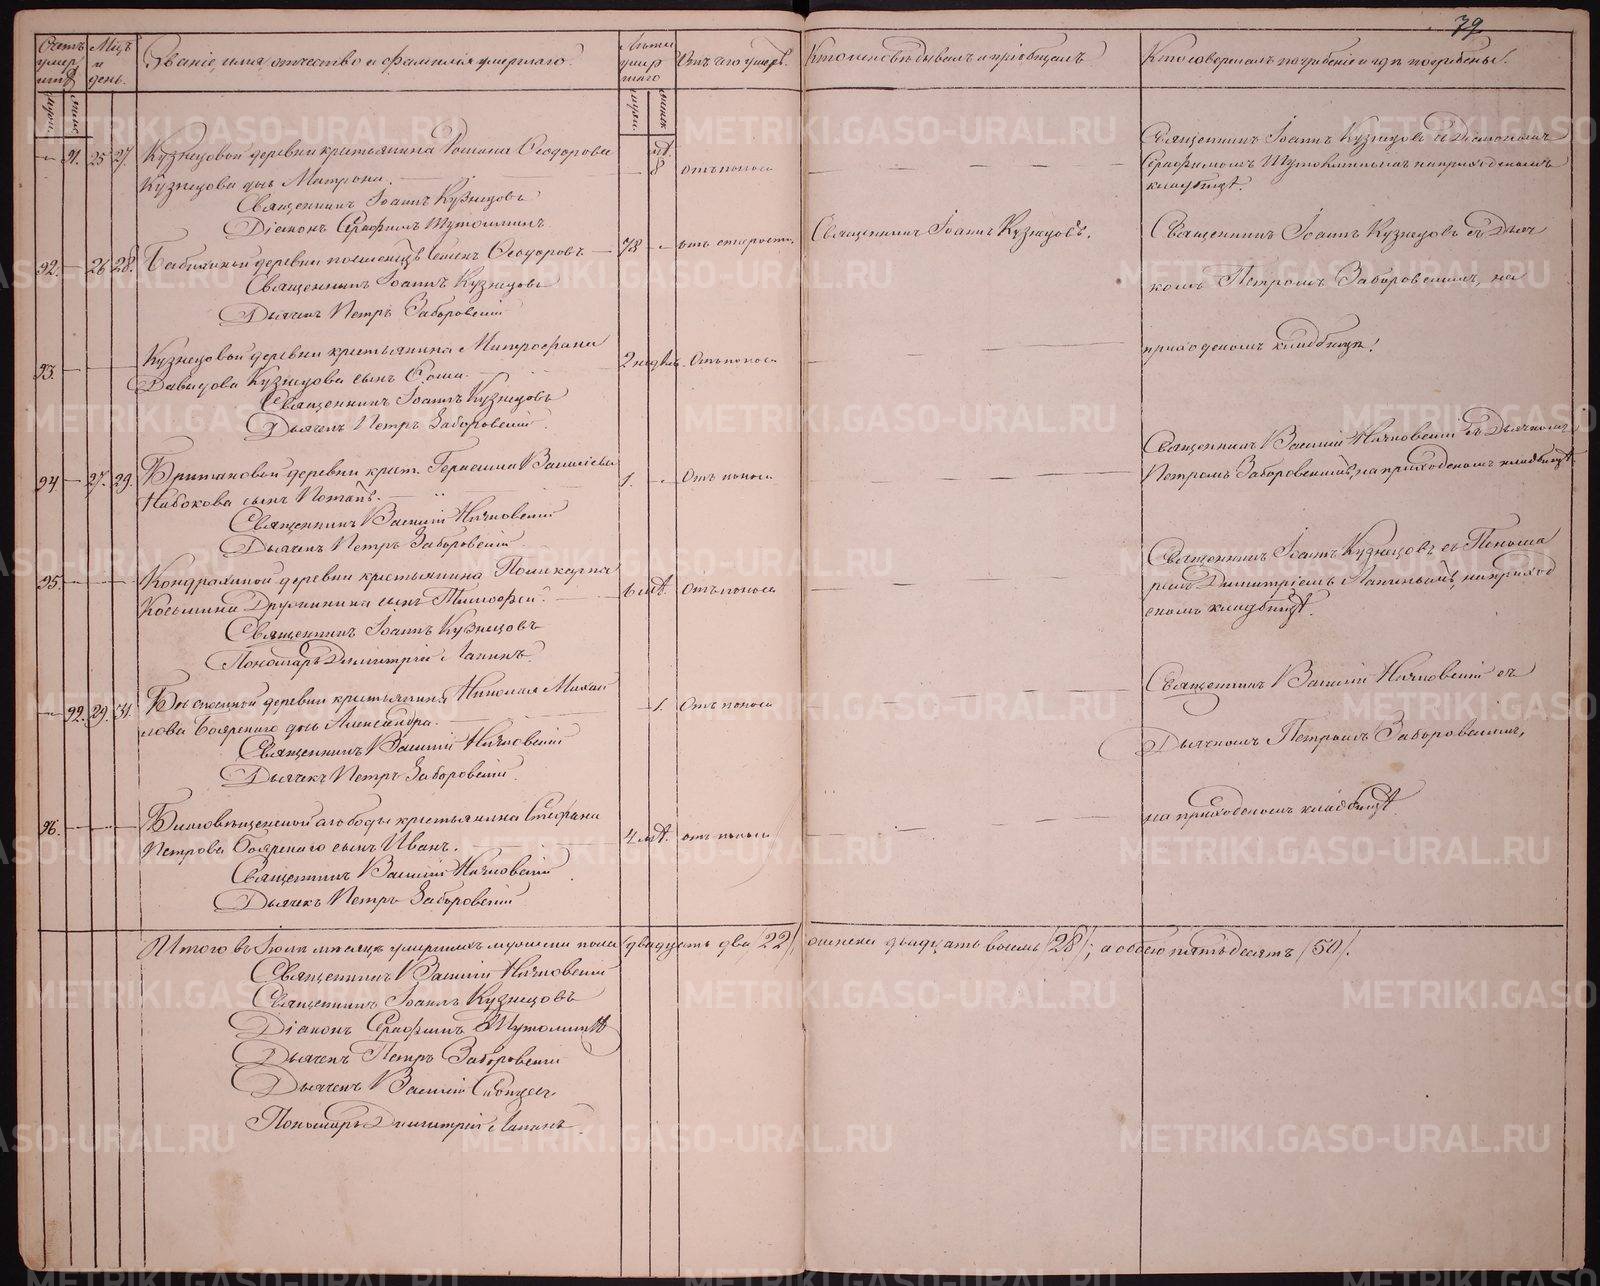 79
Счетъ умер шихъ
Мѣцъ и день.
Званіе, имя, отчество и фамилія умершаго.
Лѣта умер шаго
Отъ чего умеръ.
Кто исповѣдывалъ и пріобщалъ
Кто совершалъ погребеніе и гдѣ погребены.
муж.
женс.
муж.
женск.
— 91. 25 27. Кузнецовой деревни крестьянина Романа Ѳеодорова
Кузнецова дочь Матрона.
лѣт. 8 отъ поноса
Священникъ Іоаннъ Кузнецовъ съ Діакономъ
Серафимомъ на приходскомъ
кладбищѣ.
Священникъ Іоаннъ Кузнецовъ
Діаконъ Серафимъ
92. — 26 28. деревни Ѳеодоровъ.
78 — отъ старости.
Священникъ Іоаннъ Кузнецовъ.
Священникъ Іоаннъ Кузнецовъ съ Дьяч
комъ Петромъ Заборовскимъ, на
приходскомъ кладбищѣ.
Священникъ Іоаннъ Кузнецовъ
Дьячекъ Петръ Заборовскій
93. Кузнецовой деревни крестьянина Митрофана
Давыдова Кузнецова сынъ
2 недѣль Отъ поноса
Священникъ Іоаннъ Кузнецовъ
Дьячекъ Петръ Заборовскій.
94 — 27. 29. деревни крест. Василіева
Набокова сынъ Потапъ.
1. — Отъ поноса
Священникъ Василій съ Дьячкомъ
Петромъ Заборовскимъ, на приходскомъ кладбищѣ.
Священникъ Василій
Дьячекъ Петръ Заборовскій
95. деревни крестьянина Поликарпа
Косьмина Дружинина сынъ Тимоѳей.
6 лѣт. Отъ поноса
Священникъ Іоаннъ Кузнецовъ съ Понома
ремъ Димитріемъ Лапинымъ, на приход
скомъ кладбищѣ.
Священникъ Іоаннъ Кузнецовъ
Пономарь Димитрій Лапинъ.
— 92. 29. 31. деревни крестьянина Николая Михаи
лова Боярскаго дочь Александра.
— 1. Отъ поноса
Священникъ Василій съ
Дьячкомъ Петромъ Заборовскимъ,
на приходскомъ кладбищѣ
Священникъ Василій
Дьячекъ Петръ Заборовскій.
96. Благовѣщенской слободы крестьянина Стефана
Петрова Боярскаго сынъ Иванъ.
4 лѣт. отъ поноса
Священникъ Василій
Дьячекъ Петръ Заборовскій
Итого въ Іюлѣ мѣсяцѣ умершихъ мужеска пола двадцать два /22/, женска двадцать восемь /28/; а обоего пятьдесятъ /50/.
Священникъ Василій
Священникъ Іоаннъ Кузнецовъ
Діаконъ Серафимъ
Дьячекъ Петръ Заборовскій
Дьячекъ Василій
Пономарь Димитрій Лапинъ
METRIKI.GASO-URAL.RU